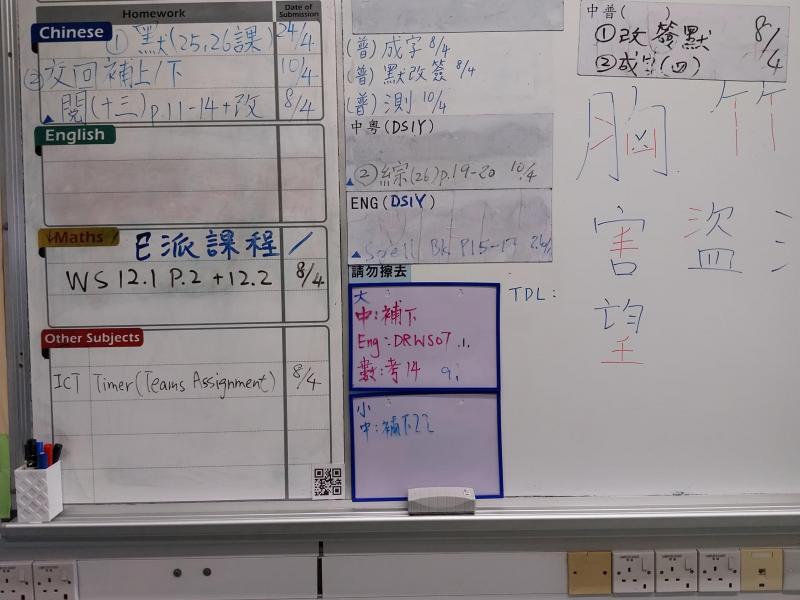 Homework
Date of Submission
Chinese
① 默(25,26課) 24/4
② 交回補上/下 10/4
閱(十三)p.11-14+改 8/4
English
Maths
E派課程/
WS 12.1 P.2 +12.2 8/4
Other Subjects
ICT Timer(Teams Assignment) 8/4
(普)成字 8/4
(普)默改簽 8/4
(普)測 10/4
中粵(DSIY)
②綜(26)p.19-20 10/4
ENG(DSIY)
Spell Bk P15-17
請勿擦去
大
中:補下
Eng:DRWS07
數:考14
小
中:補下22
TDL:
中普( )
①改簽默 8/4
②成字(四)
胸 竹
害 盜
望